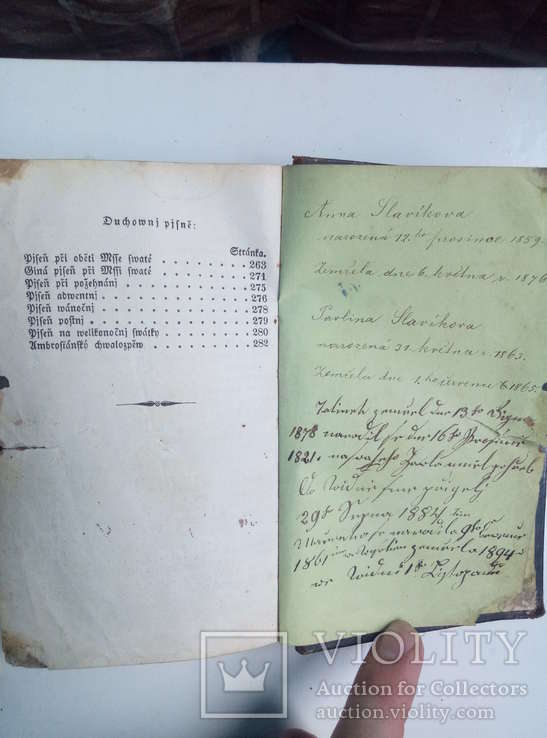 Duchownj pjsně:
Stránka.
Pjseň při oběti Mše swaté . . . . . . . . 263
Giná pjseň při Mši swaté . . . . . . . . 271
Pjseň při požehnánj . . . . . . . . 275
Pjseň adwentnj . . . . . . . . 276
Pjseň wánočnj . . . . . . . . 278
Pjseň postnj . . . . . . . . 279
Pjseň na welikonočnj swátky . . . . . . . . 280
Ambrosiánský chwalozpěw . . . . . . . . 282
Anna Slavikova
narozená 12. prosince 1859.
Zemřela dne 6. května 1876
Pavlina Slavikova
narozená 31. května 1863.
Zemřela dne 1. 1865.
zemřel dne 13
1878 narodil se dne 16
1821.
Do Widně sme
29 Srpna 1884
narodila
1861 zemřela 1894
we Widni 1 Listopadu
VIOLITY
Auction for Collectors
auction.violity.com